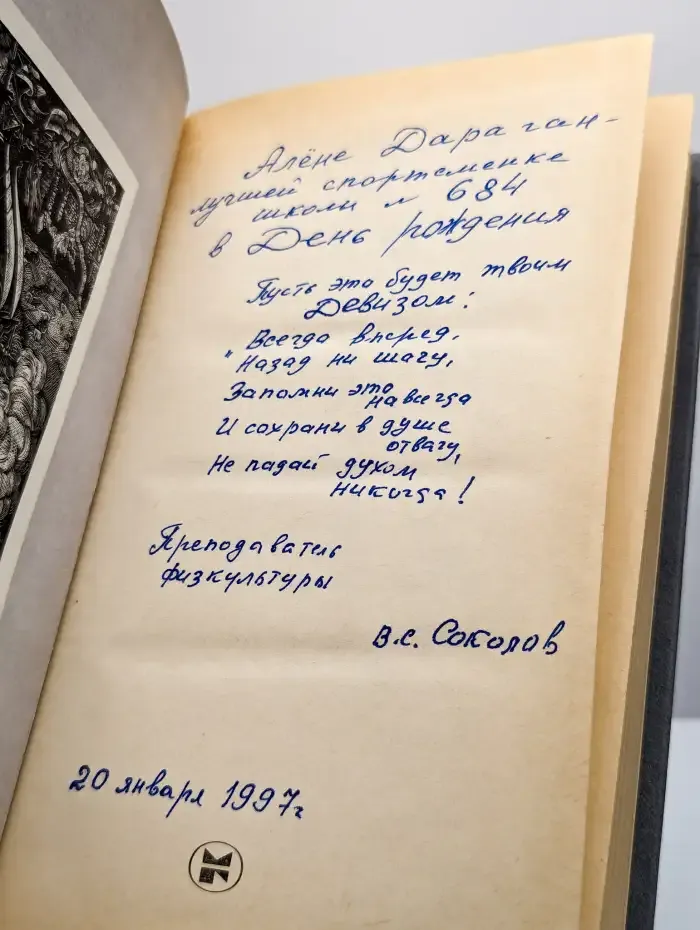 Алёне Дараган -
лучшей спортсменке
школы № 684
в День рождения
Пусть это будет твоим
Девизом:
Всегда вперед,
"Назад ни шагу,
Запомни это
навсегда
И сохрани в душе
отвагу,
Не падай духом
никогда!
Преподаватель
физкультуры
В.С. Соколов
20 января 1997г